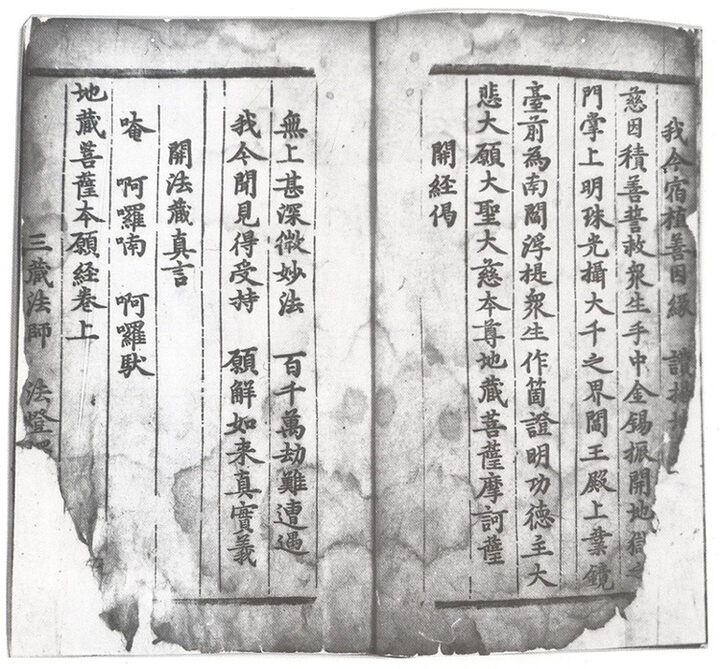 我今宿植善因緣 讚揚地
慈因積善誓救衆生手中金錫振開地獄之
門掌上明珠光攝大千之界閻王殿上業鏡
臺前為南閻浮提衆生作箇證明功德主大
悲大願大聖大慈本尊地藏菩薩摩訶薩
開經偈
無上甚深微妙法 百千萬劫難遭遇
我今聞見得受持 願解如来真實義
開法藏真言
唵 啊囉喃 啊囉馱
地藏菩薩本願經卷上
三藏法師 法燈